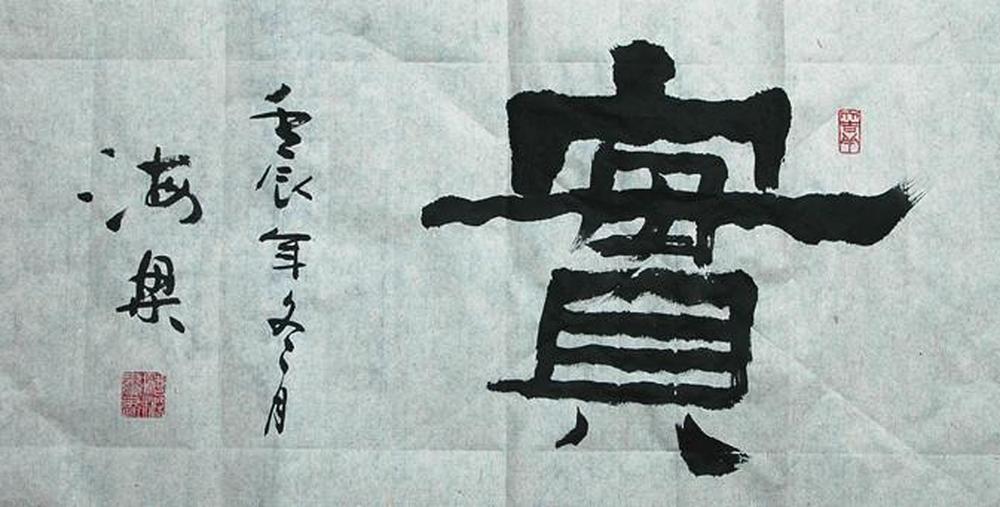 實
壬辰年冬月
海